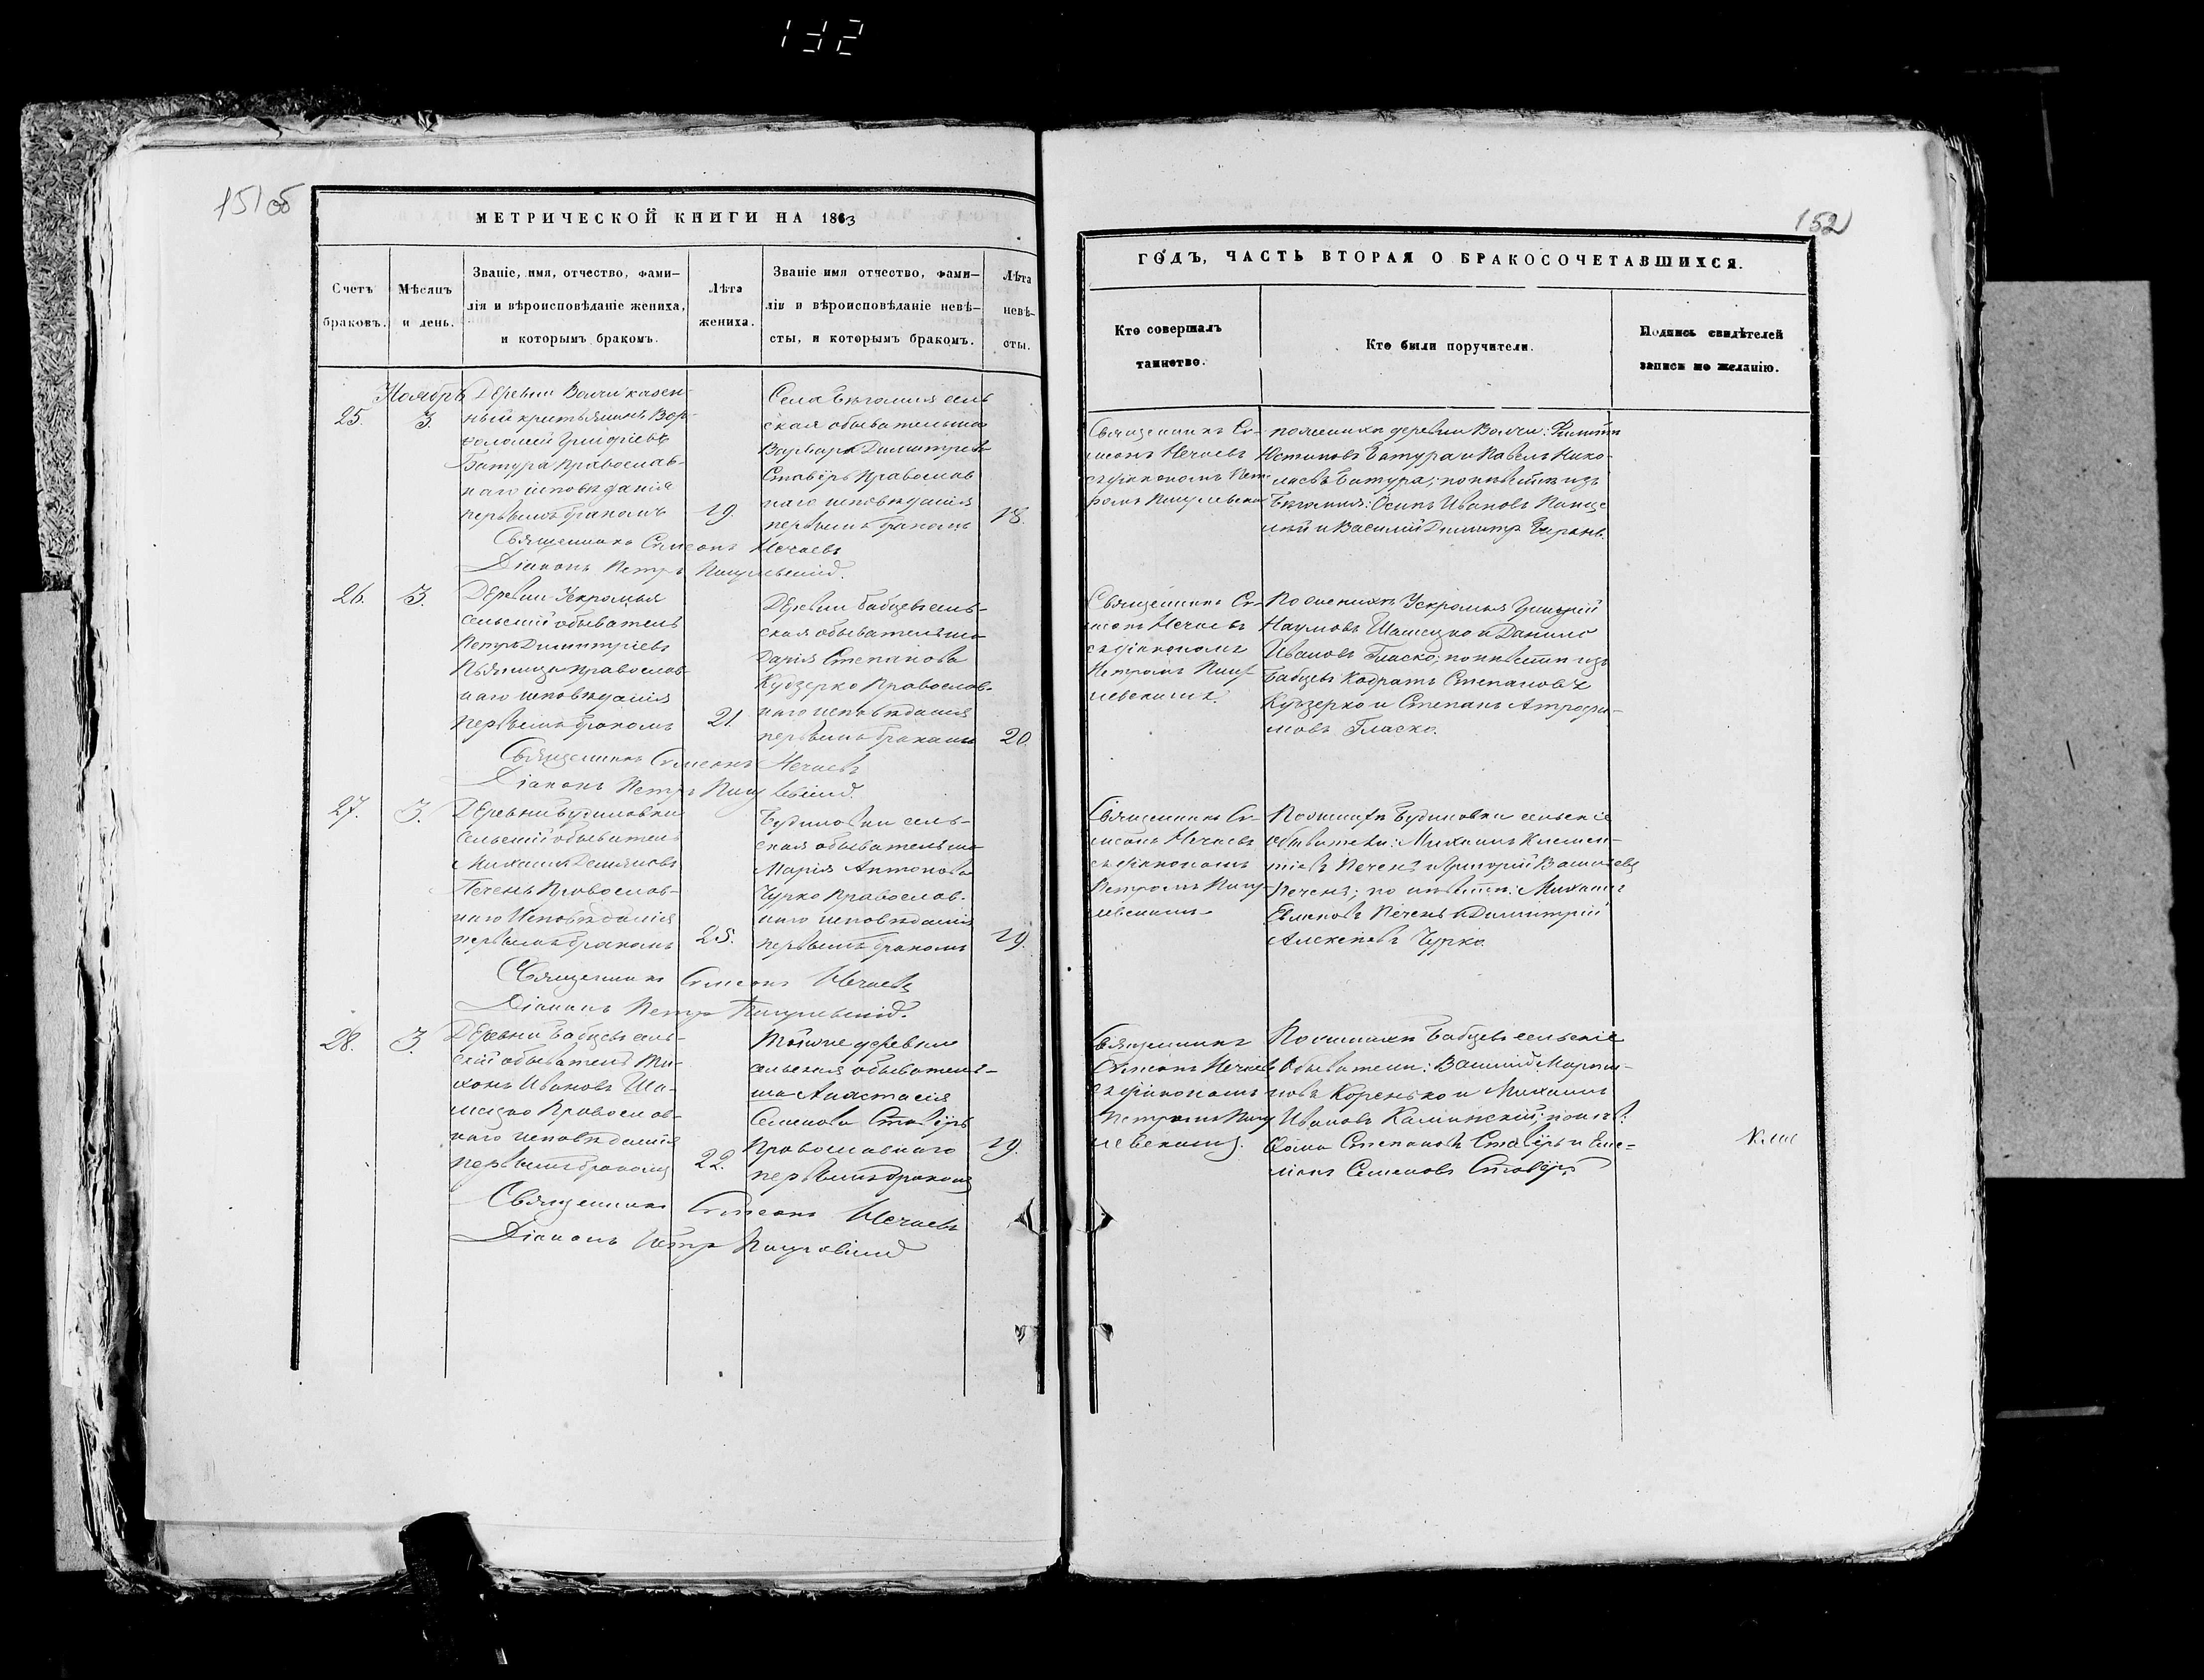 132
151об
МЕТРИЧЕСКОЙ КНИГИ НА 1863
Счетъ
браковъ.
Мѣсяцъ
и день.
Званіе, имя, отчество, фами-
лія и вѣроисповѣданіе жениха,
и которымъ бракомъ.
Лѣта
жениха.
Званіе имя отчество, фами-
лія и вѣроисповѣданіе невѣ-
сты, и которымъ бракомъ.
Лѣта
невѣ-
сты.
25.
Ноябрь
3.
Деревни Волчи казен-
ный крестьянинъ Вар-
фоломей
Батура Православ-
наго исповѣданія
первымъ бракомъ
19.
Села Бѣгомля сель
ская обывателька
Варвара Димитріева
Ставёръ Православ
наго исповѣданія
первымъ бракомъ
18.
Священникъ Симеонъ Нечаевъ
Діаконъ Петръ
26.
3.
Деревни Ускромья
сельскій обыватель
Петръ Димитріевъ
Пьяница Православ
наго исповѣданія
первымъ бракомъ
21.
Деревни Бабцевъ сель-
ская обывателька
Дарія Степанова
Кудзерко Православ-
наго исповѣданія
первымъ бракомъ
20.
Священникъ Симеонъ Нечаевъ
Діаконъ Петръ
27.
3.
Деревни Будиловки
Сельскій обыватель
Михаилъ Демьяновъ
Печень Православ-
наго Исповѣданія
первымъ бракомъ
25.
Будиловки сель-
ская обывателька
Марія Антонова
Чурко Православ-
наго исповѣданія
первымъ бракомъ
19.
Священникъ Симеонъ Нечаевъ
Діаконъ Петръ
28.
3.
Деревни Бабцевъ сель-
скій обыватель Ти-
хонъ Ивановъ Ша-
мецко Православ-
наго исповѣданія
первымъ бракомъ
22.
Тойже деревни
сельская обыватель-
ка Анастасія
Семенова Ставёръ
Православнаго
первымъ бракомъ
19.
Священникъ Симеонъ Нечаевъ
Діаконъ Петръ
152
ГОДЪ, ЧАСТЬ ВТОРАЯ О БРАКОСОЧЕТАВШИХСЯ.
Кто совершалъ
таинство.
Кто были поручители.
Подпись свидѣтелей
записи по желанію.
Священникъ Си-
меонъ Нечаевъ
съ діакономъ Пет
ромъ
по женихѣ деревни Волчи:
Устиновъ Батура и Павелъ Нико-
лаевъ Батура; по невѣстѣ изъ
Бѣгомля: Осипъ Ивановъ
и Василій Димитр.
Священникъ Си-
меонъ Нечаевъ
съ діакономъ
Петромъ
По женихѣ Ускромья Григорій
Наумовъ Шамецко и Данило
Ивановъ Гласко; по невѣстѣ изъ
Бабцевъ Кодратъ Степановъ
Кудзерко и Степанъ Атрофи-
мовъ Гласко.
Священникъ Си-
меонъ Нечаевъ
съ діакономъ
Петромъ
По женихѣ Будиловки сельскіе
обыватели: Михаилъ Климен-
тіевъ Печень и Григорій Васильевъ
Печень; по невѣстѣ: Михаилъ
Печень и Димитрій
Алексѣевъ Чурко.
Священникъ
Симеонъ Нечаевъ
съ діакономъ
Петромъ
По женихѣ Бабцевъ сельскіе
Обыватели: Василій Марти-
новъ Коренько и Михаилъ
Ивановъ Калинскій; по невѣ.
Фома Степановъ Ставёръ и Еме-
льянъ Семеновъ Ставёръ